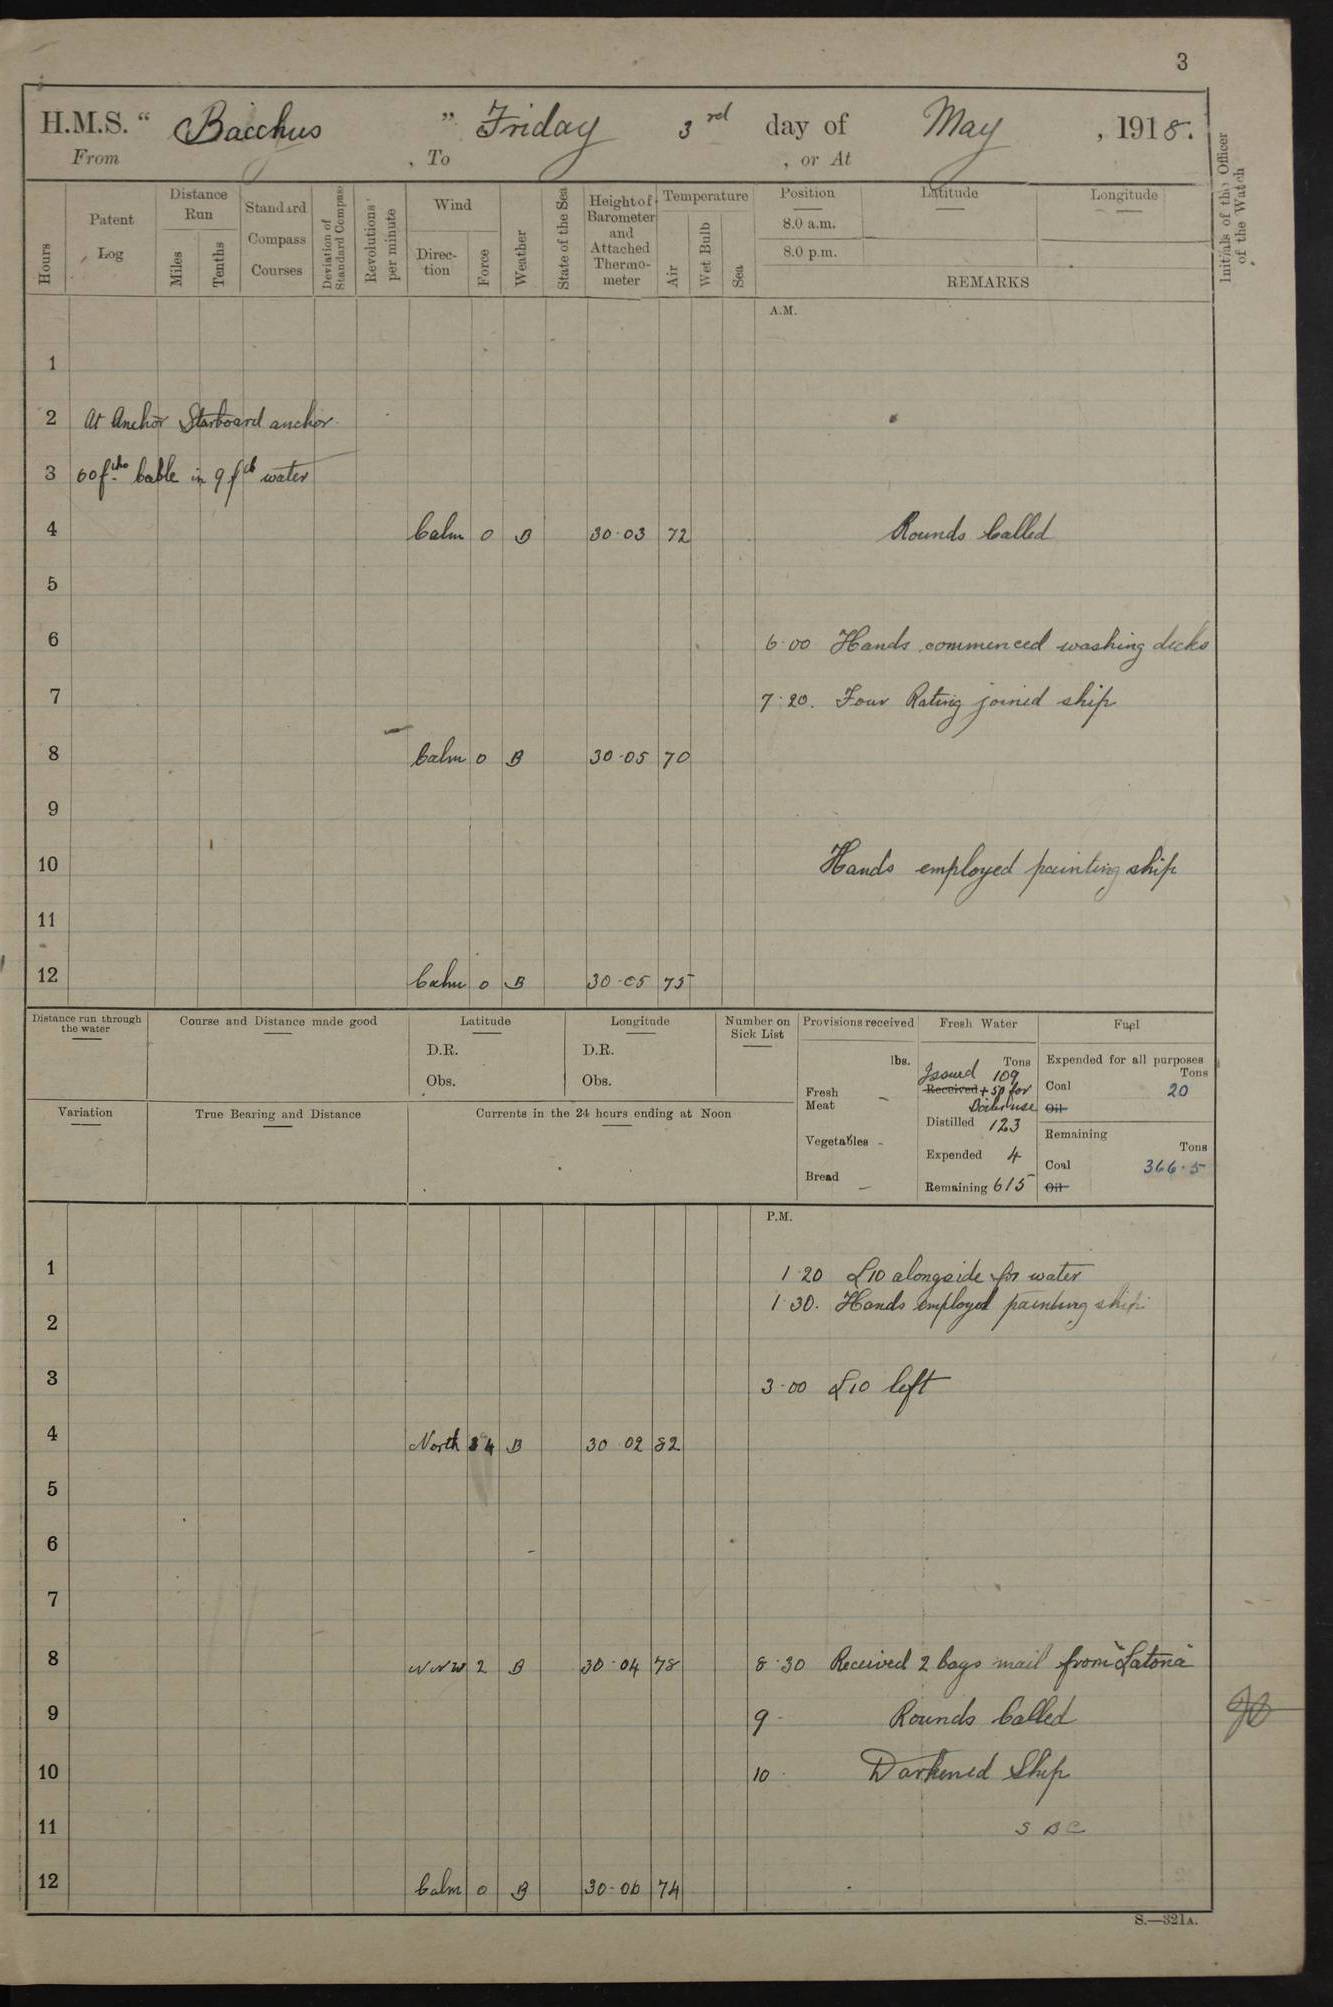 3
H.M.S. " Bacchus " Friday 3rd day of May , 1918.
From , To , or At
Initials of the Officer of the Watch
Hours
Patent Log
Distance Run
Miles
Tenths
Standard Compass Courses
Deviation of Standard Compass
Revolutions per minute
Wind
Direc-tion
Force
Weather
State of the Sea
Height of Barometer and Attached Thermo-meter
Temperature
Air
Wet Bulb
Sea
Position Latitude Longitude
8.0 a.m.
8.0 p.m.
REMARKS
A.M.
1
2 At Anchor Starboard anchor.
3 60 fths Cable in 9 fth water
4 Calm 0 B 30·03 72 Rounds Called
5
6 6·00 Hands commenced washing decks
7 7·20. Four Rating joined ship
8 Calm 0 B 30·05 70
9
10 Hands employed painting ship
11
12 Calm 0 B 30·05 75
Distance run through the water
Course and Distance made good
Latitude
D.R.
Obs.
Longitude
D.R.
Obs.
Number on Sick List
Variation
True Bearing and Distance
Currents in the 24 hours ending at Noon
Provisions received
lbs.
Fresh Meat -
Vegetables -
Bread -
Fresh Water
Tons
Issued 109
Received + 50 for
Boiler use
Distilled 123
Expended 4
Remaining 615
Fuel
Expended for all purposes
Tons
Coal 20
Oil
Remaining
Tons
Coal 366·5
Oil
P.M.
1 1·20 L10 alongside for water
1·30. Hands employed painting ship
2
3 3·00 L10 left
4 North 4 B 30 02 82
5
6
7
8 NNW 2 B 30·04 78 8·30 Received 2 bags mail from "Latona"
9 9 Rounds Called
10 10 Darkened Ship
11 S B C
12 Calm 0 B 30·06 74
S.—321A.